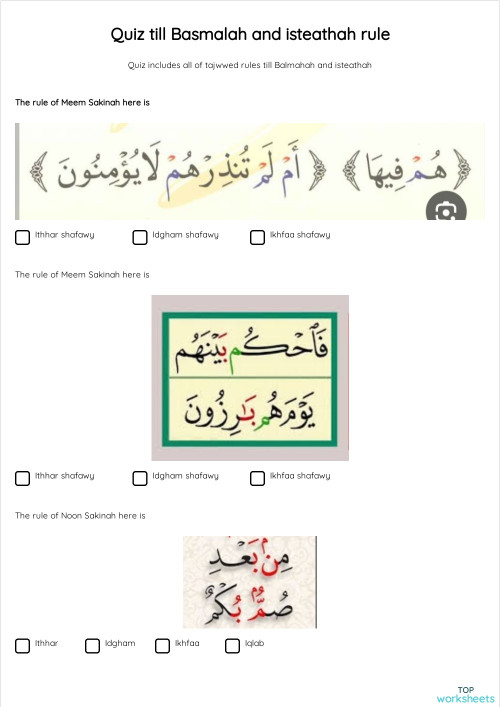 Quiz till Basmalah and isteathah rule
Quiz includes all of tajwwed rules till Balmahah and isteathah
The rule of Meem Sakinah here is
﴿ هُمْ فِيهَا ﴾ ﴿ أَمْ لَمْ تُنذِرْهُمْ لَا يُؤْمِنُونَ ﴾
Ithhar shafawy Idgham shafawy Ikhfaa shafawy
The rule of Meem Sakinah here is
فَٱحْكُم بَيْنَهُم
يَوْمَ هُم بَٰرِزُونَ
Ithhar shafawy Idgham shafawy Ikhfaa shafawy
The rule of Noon Sakinah here is
مِنۢ بَعْدِ
صُمٌّۢ بُكْمٌ
Ithhar Idgham Ikhfaa Iqlab
TOP
worksheets